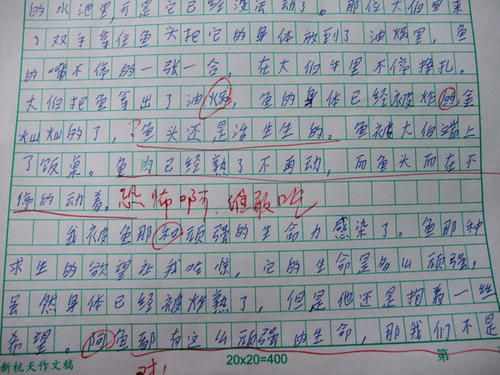 的水池里,可是它已经没法动了。那位大伯里来
了双手拿住鱼头把它的身体放到了油锅里,鱼
的嘴不停的一张一合,在大伯手里不停挣扎。
大伯把鱼拿出了油锅,鱼的身体已经被炸的金
灿灿的了,鱼头还是活生生的。鱼被大伯端上
了饭桌。鱼肉已经熟了不再动,而鱼头而在不
停的动着。恐怖啊,谁敢吃
我被鱼那种顽强的生命力感染了。鱼那种
求生的欲望让我吃惊,它的生命是多么顽强,
虽然身体已经被炸熟了,但是他还是抱着一丝
希望。阿鱼都有这么顽强的生命,那我们不是
新杭天作文稿 20x20=400 第